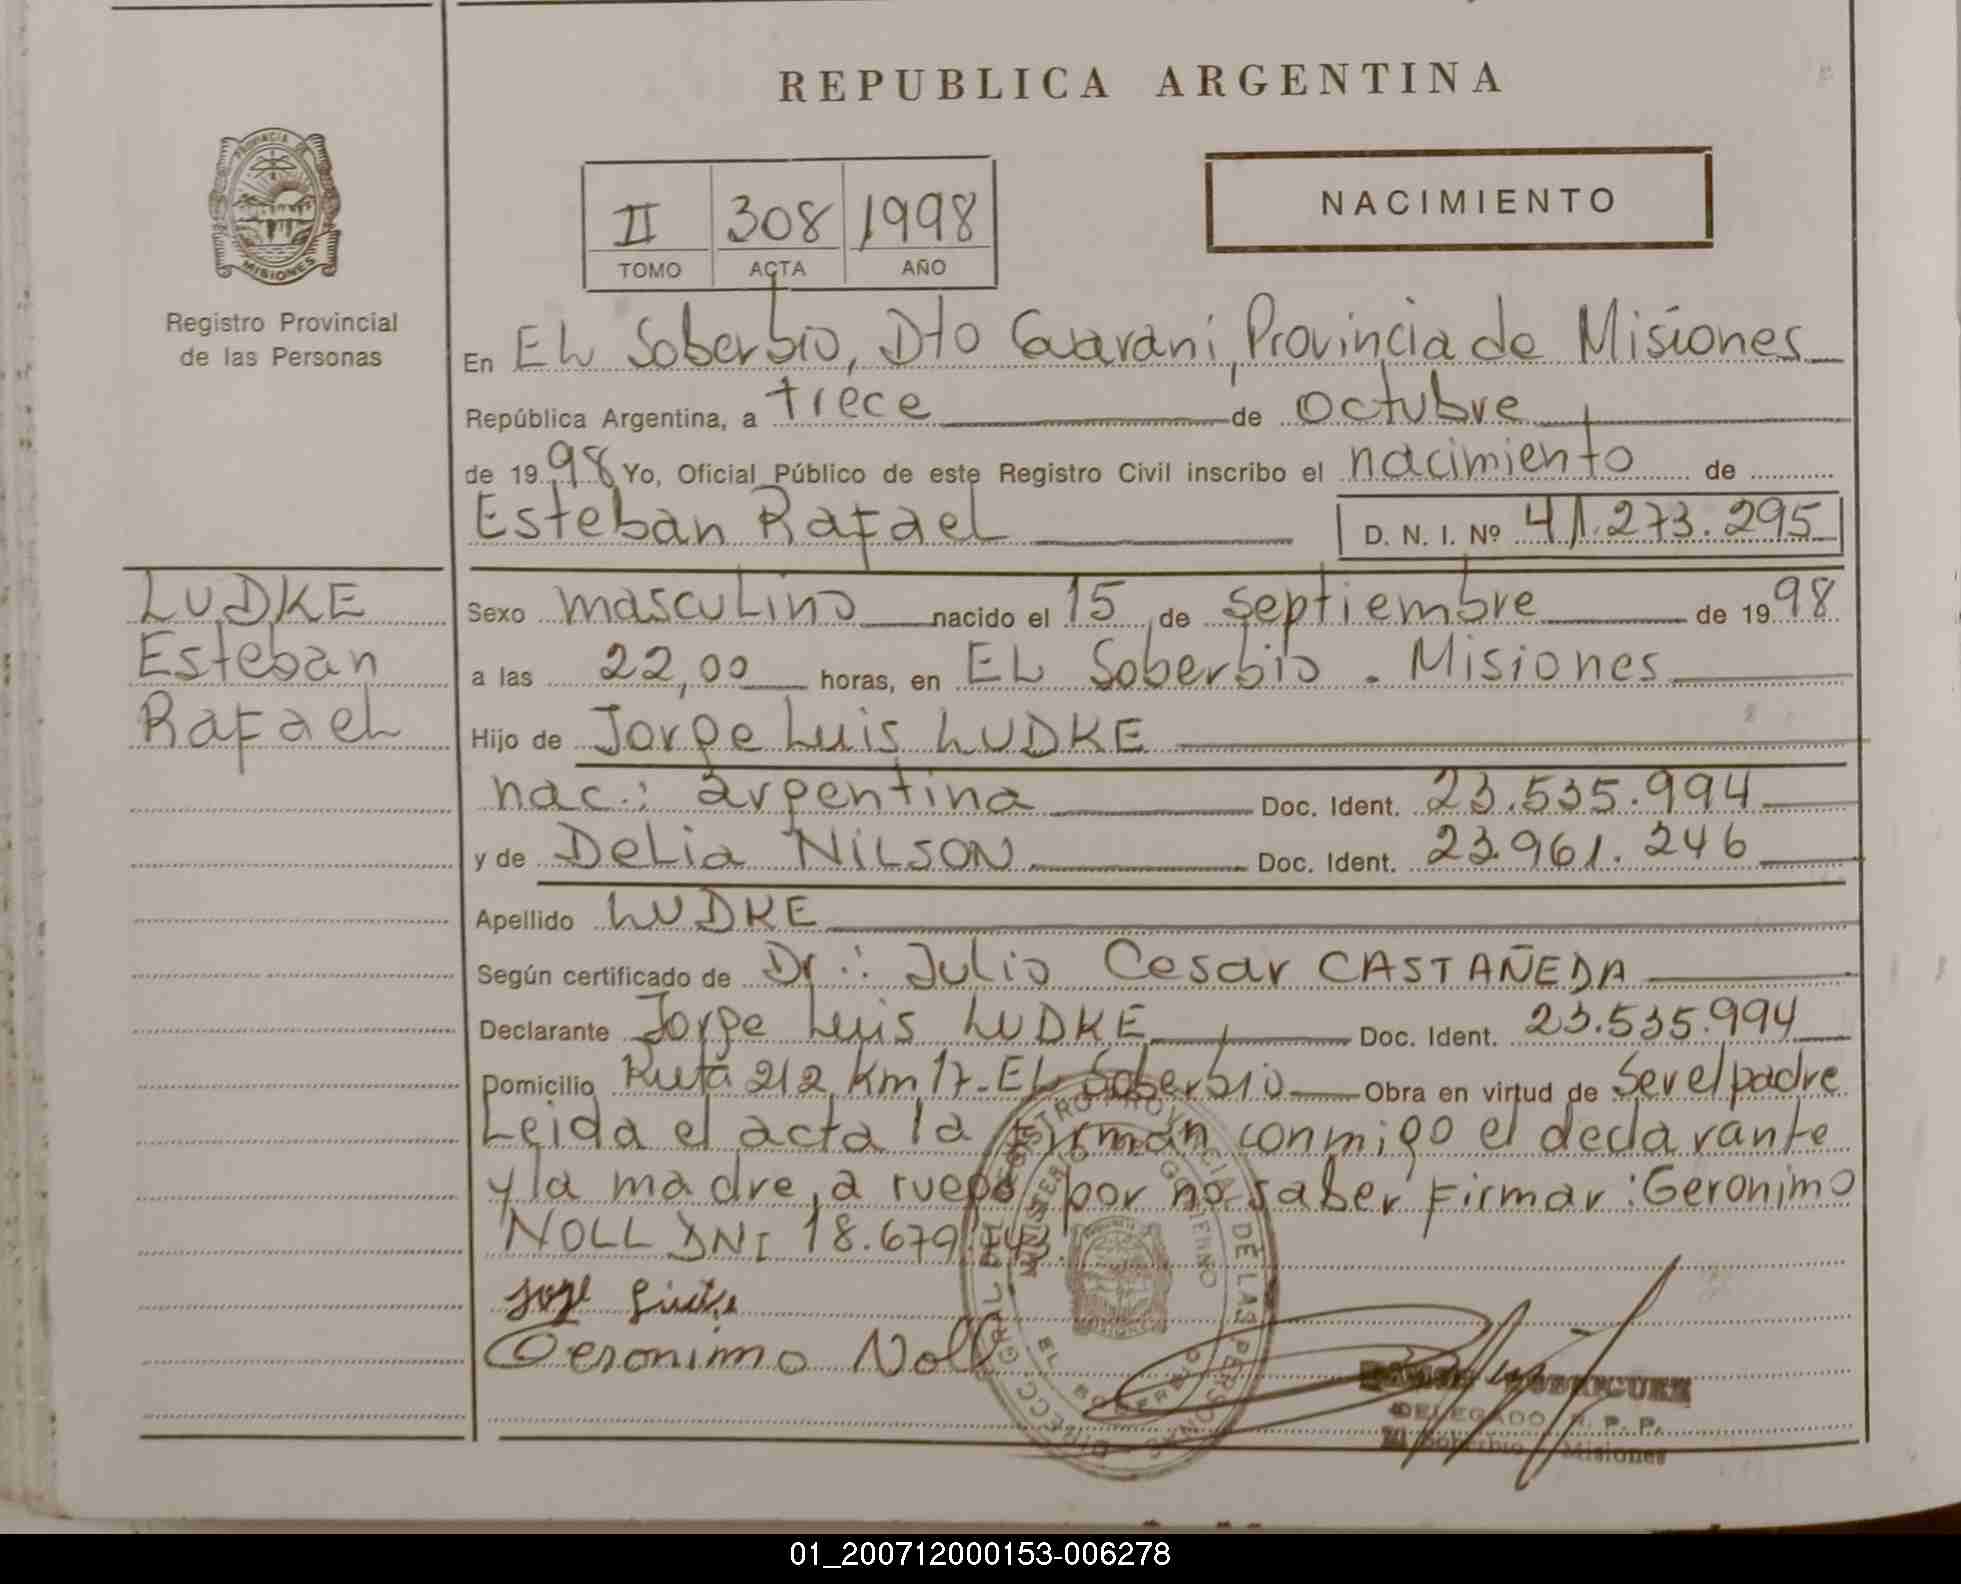 REPUBLICA ARGENTINA
PROVINCIA DE
MISIONES
Registro Provincial
de las Personas
NACIMIENTO
II 308 1998
TOMO ACTA AÑO
En EL Soberbio, Dto Guarani, Provincia de Misiones
República Argentina, a trece de octubre
de 1998 Yo, Oficial Público de este Registro Civil inscribo el nacimiento de
Esteban Rafael D. N. I. Nº 41.273.295
LUDKE
Esteban
Rafael
Sexo masculino nacido el 15 de septiembre de 1998
a las 22,00 horas, en EL Soberbio - Misiones
Hijo de Jorge Luis LUDKE
nac.: argentina Doc. Ident. 23.535.994
y de Delia NILSON Doc. Ident. 23.961.246
Apellido LUDKE
Según certificado de Dr.: Julio Cesar CASTAÑEDA
Declarante Jorge Luis LUDKE Doc. Ident. 23.535.994
Domicilio Ruta 212 Km 17-EL Soberbio Obra en virtud de ser el padre
Leida el acta la firman conmigo el declarante
y la madre, a ruego por no saber firmar: Geronimo
NOLL DNI 18.679.
Geronimo Noll
DELEGADO R. P. P.
El Soberbio Misiones
01_200712000153-006278